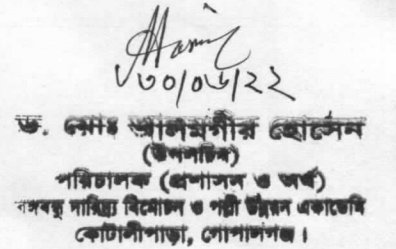 ৩০/০৬/২২
ড. মোঃ আলমগীর হোসেন
(উপসচিব)
পরিচালক (প্রশাসন ও অর্থ)
বঙ্গবন্ধু দারিদ্র্য বিমোচন ও পল্লী উন্নয়ন একাডেমি
কোটালীপাড়া, গোপালগঞ্জ।